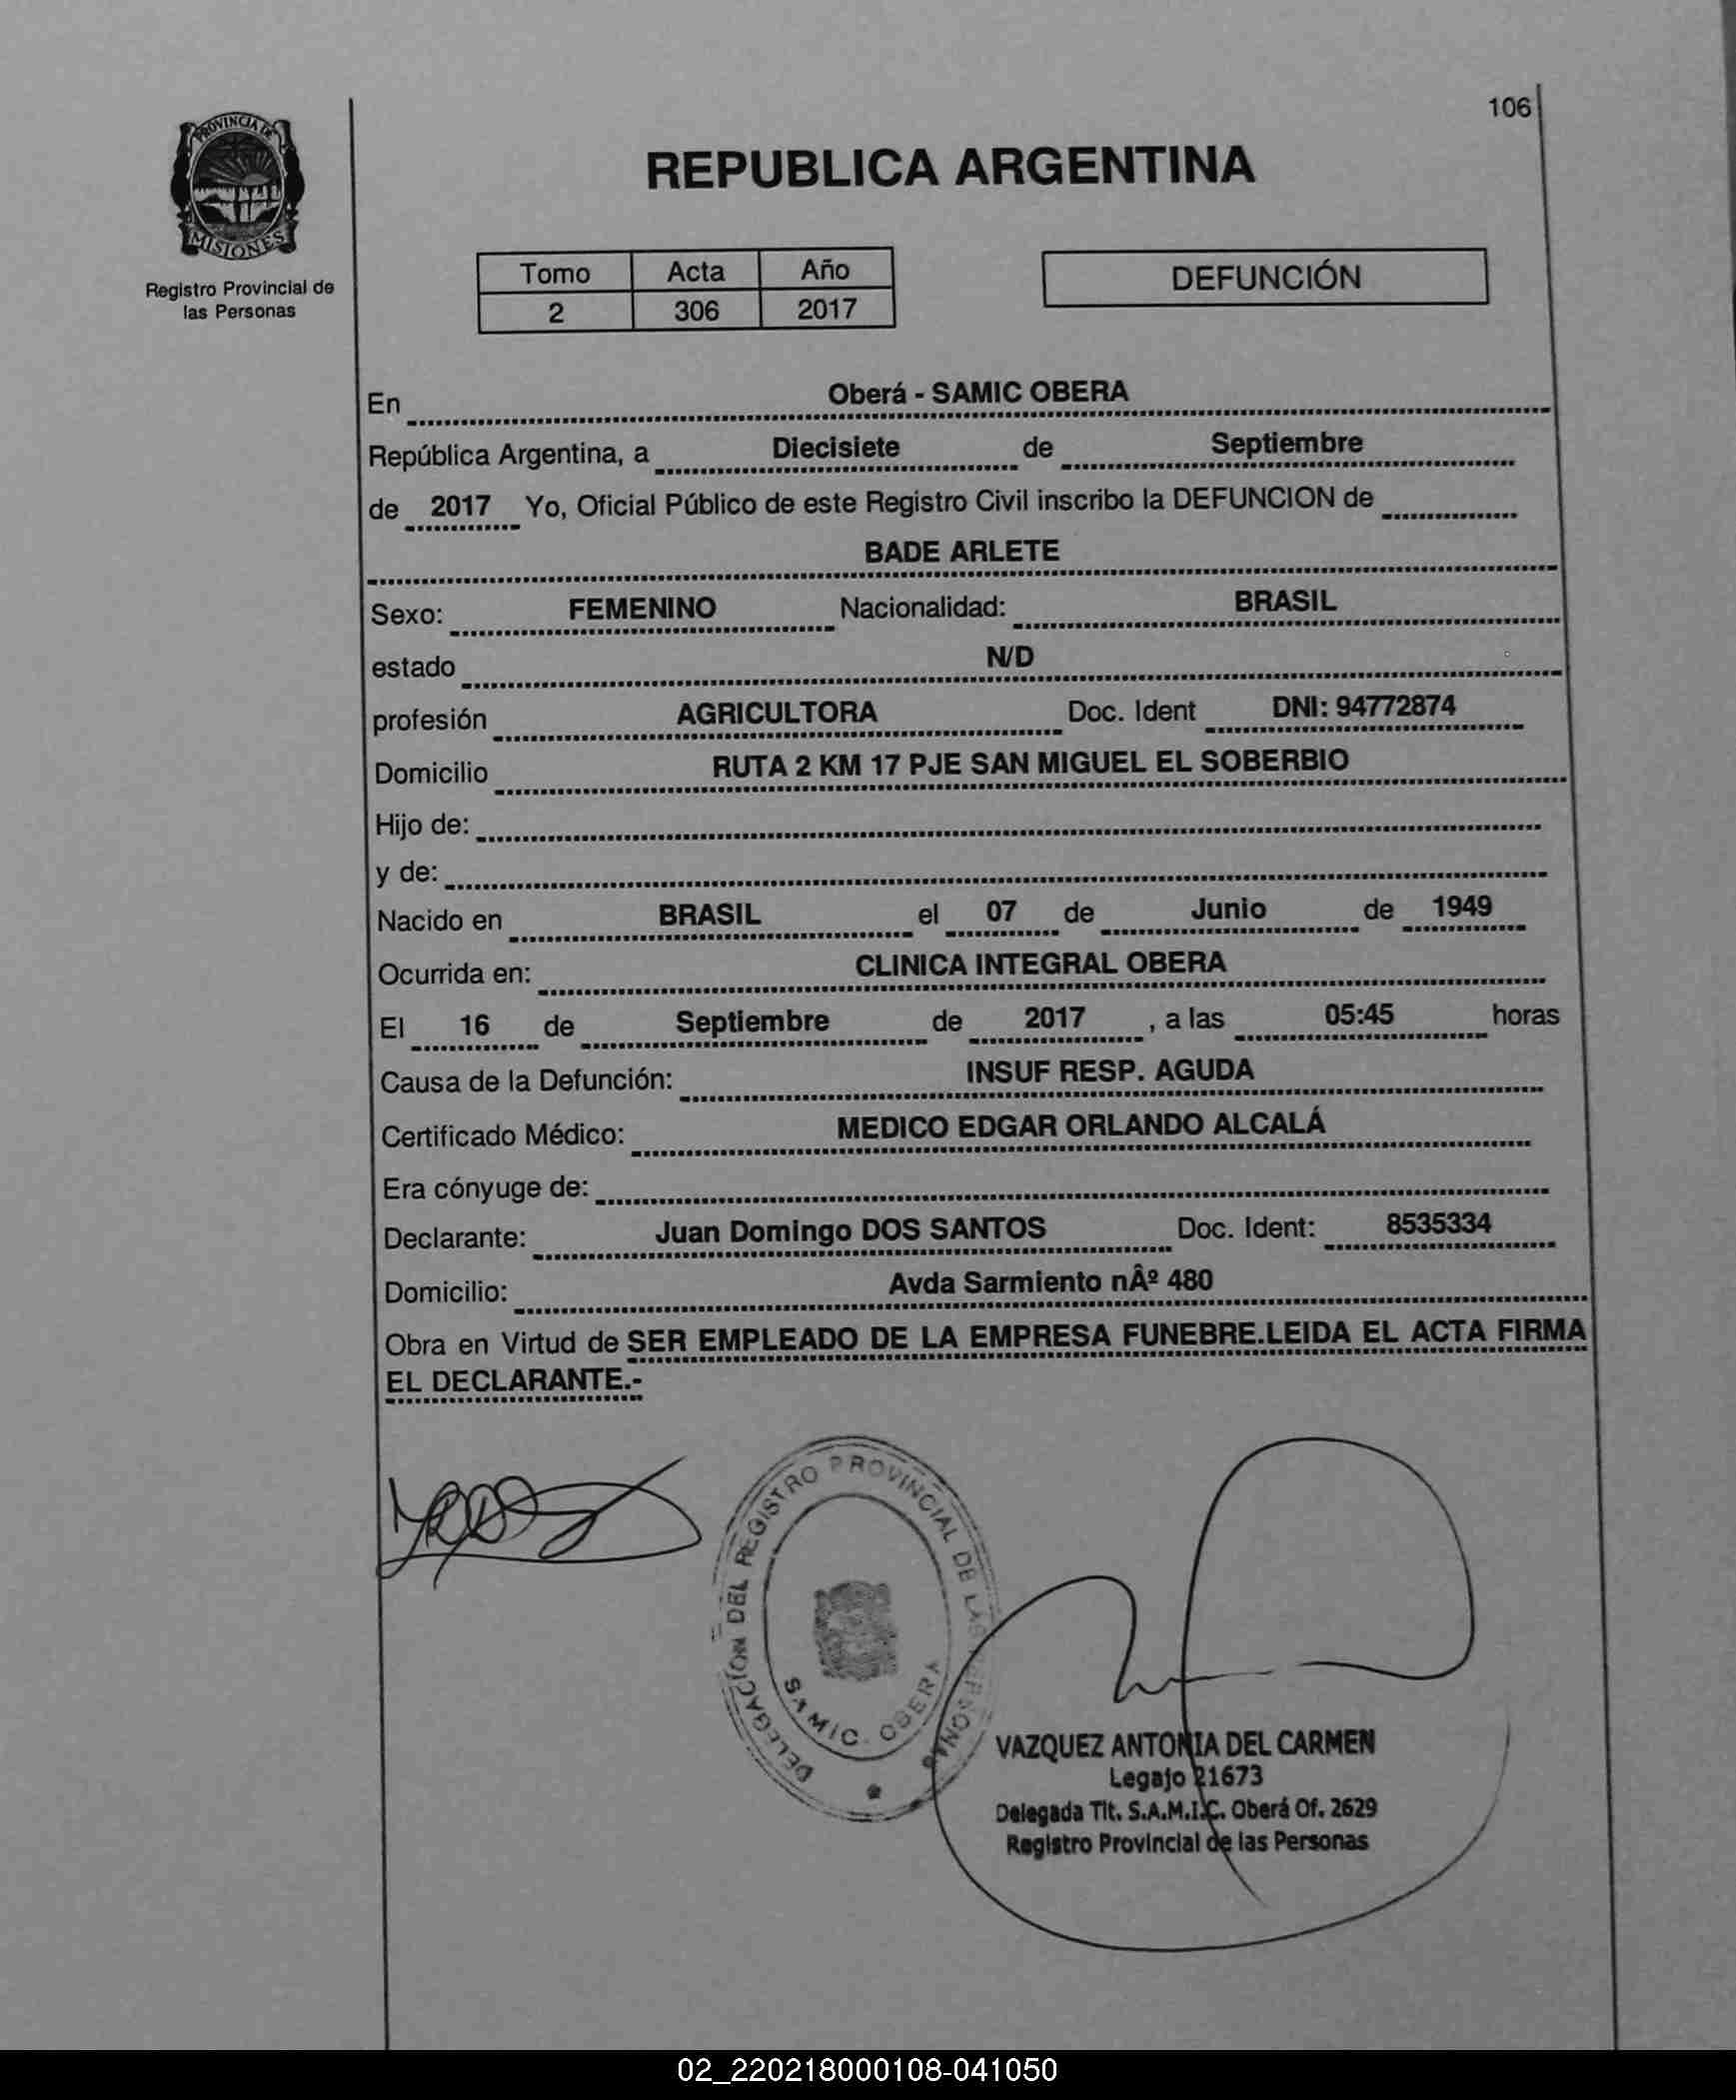 106
PROVINCIA DE
MISIONES
Registro Provincial de
las Personas
REPUBLICA ARGENTINA
Tomo Acta Año
2 306 2017
DEFUNCIÓN
En Oberá - SAMIC OBERA
República Argentina, a Diecisiete de Septiembre
de 2017 Yo, Oficial Público de este Registro Civil inscribo la DEFUNCION de
BADE ARLETE
Sexo: FEMENINO Nacionalidad: BRASIL
estado N/D
profesión AGRICULTORA Doc. Ident DNI: 94772874
Domicilio RUTA 2 KM 17 PJE SAN MIGUEL EL SOBERBIO
Hijo de:
y de:
Nacido en BRASIL el 07 de Junio de 1949
Ocurrida en: CLINICA INTEGRAL OBERA
El 16 de Septiembre de 2017 , a las 05:45 horas
Causa de la Defunción: INSUF RESP. AGUDA
Certificado Médico: MEDICO EDGAR ORLANDO ALCALÁ
Era cónyuge de:
Declarante: Juan Domingo DOS SANTOS Doc. Ident: 8535334
Domicilio: Avda Sarmiento nÂº 480
Obra en Virtud de SER EMPLEADO DE LA EMPRESA FUNEBRE.LEIDA EL ACTA FIRMA
EL DECLARANTE.-
DELEGACION DEL REGISTRO PROVINCIAL DE LAS PERSONAS
SAMIC. OBERA
VAZQUEZ ANTONIA DEL CARMEN
Legajo 21673
Delegada Tit. S.A.M.I.C. Oberá Of. 2629
Registro Provincial de las Personas
02_220218000108-041050